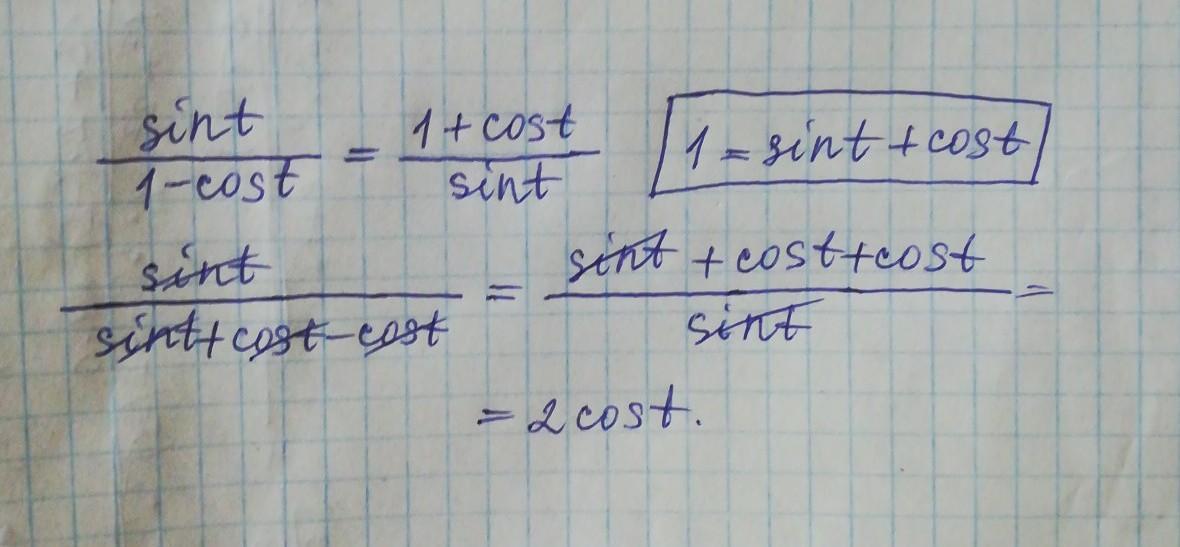 sint / 1-cost = 1+cost / sint   1=sint+cost
sint / sint+cost-cost = sint+cost+cost / sint =
= 2cost.